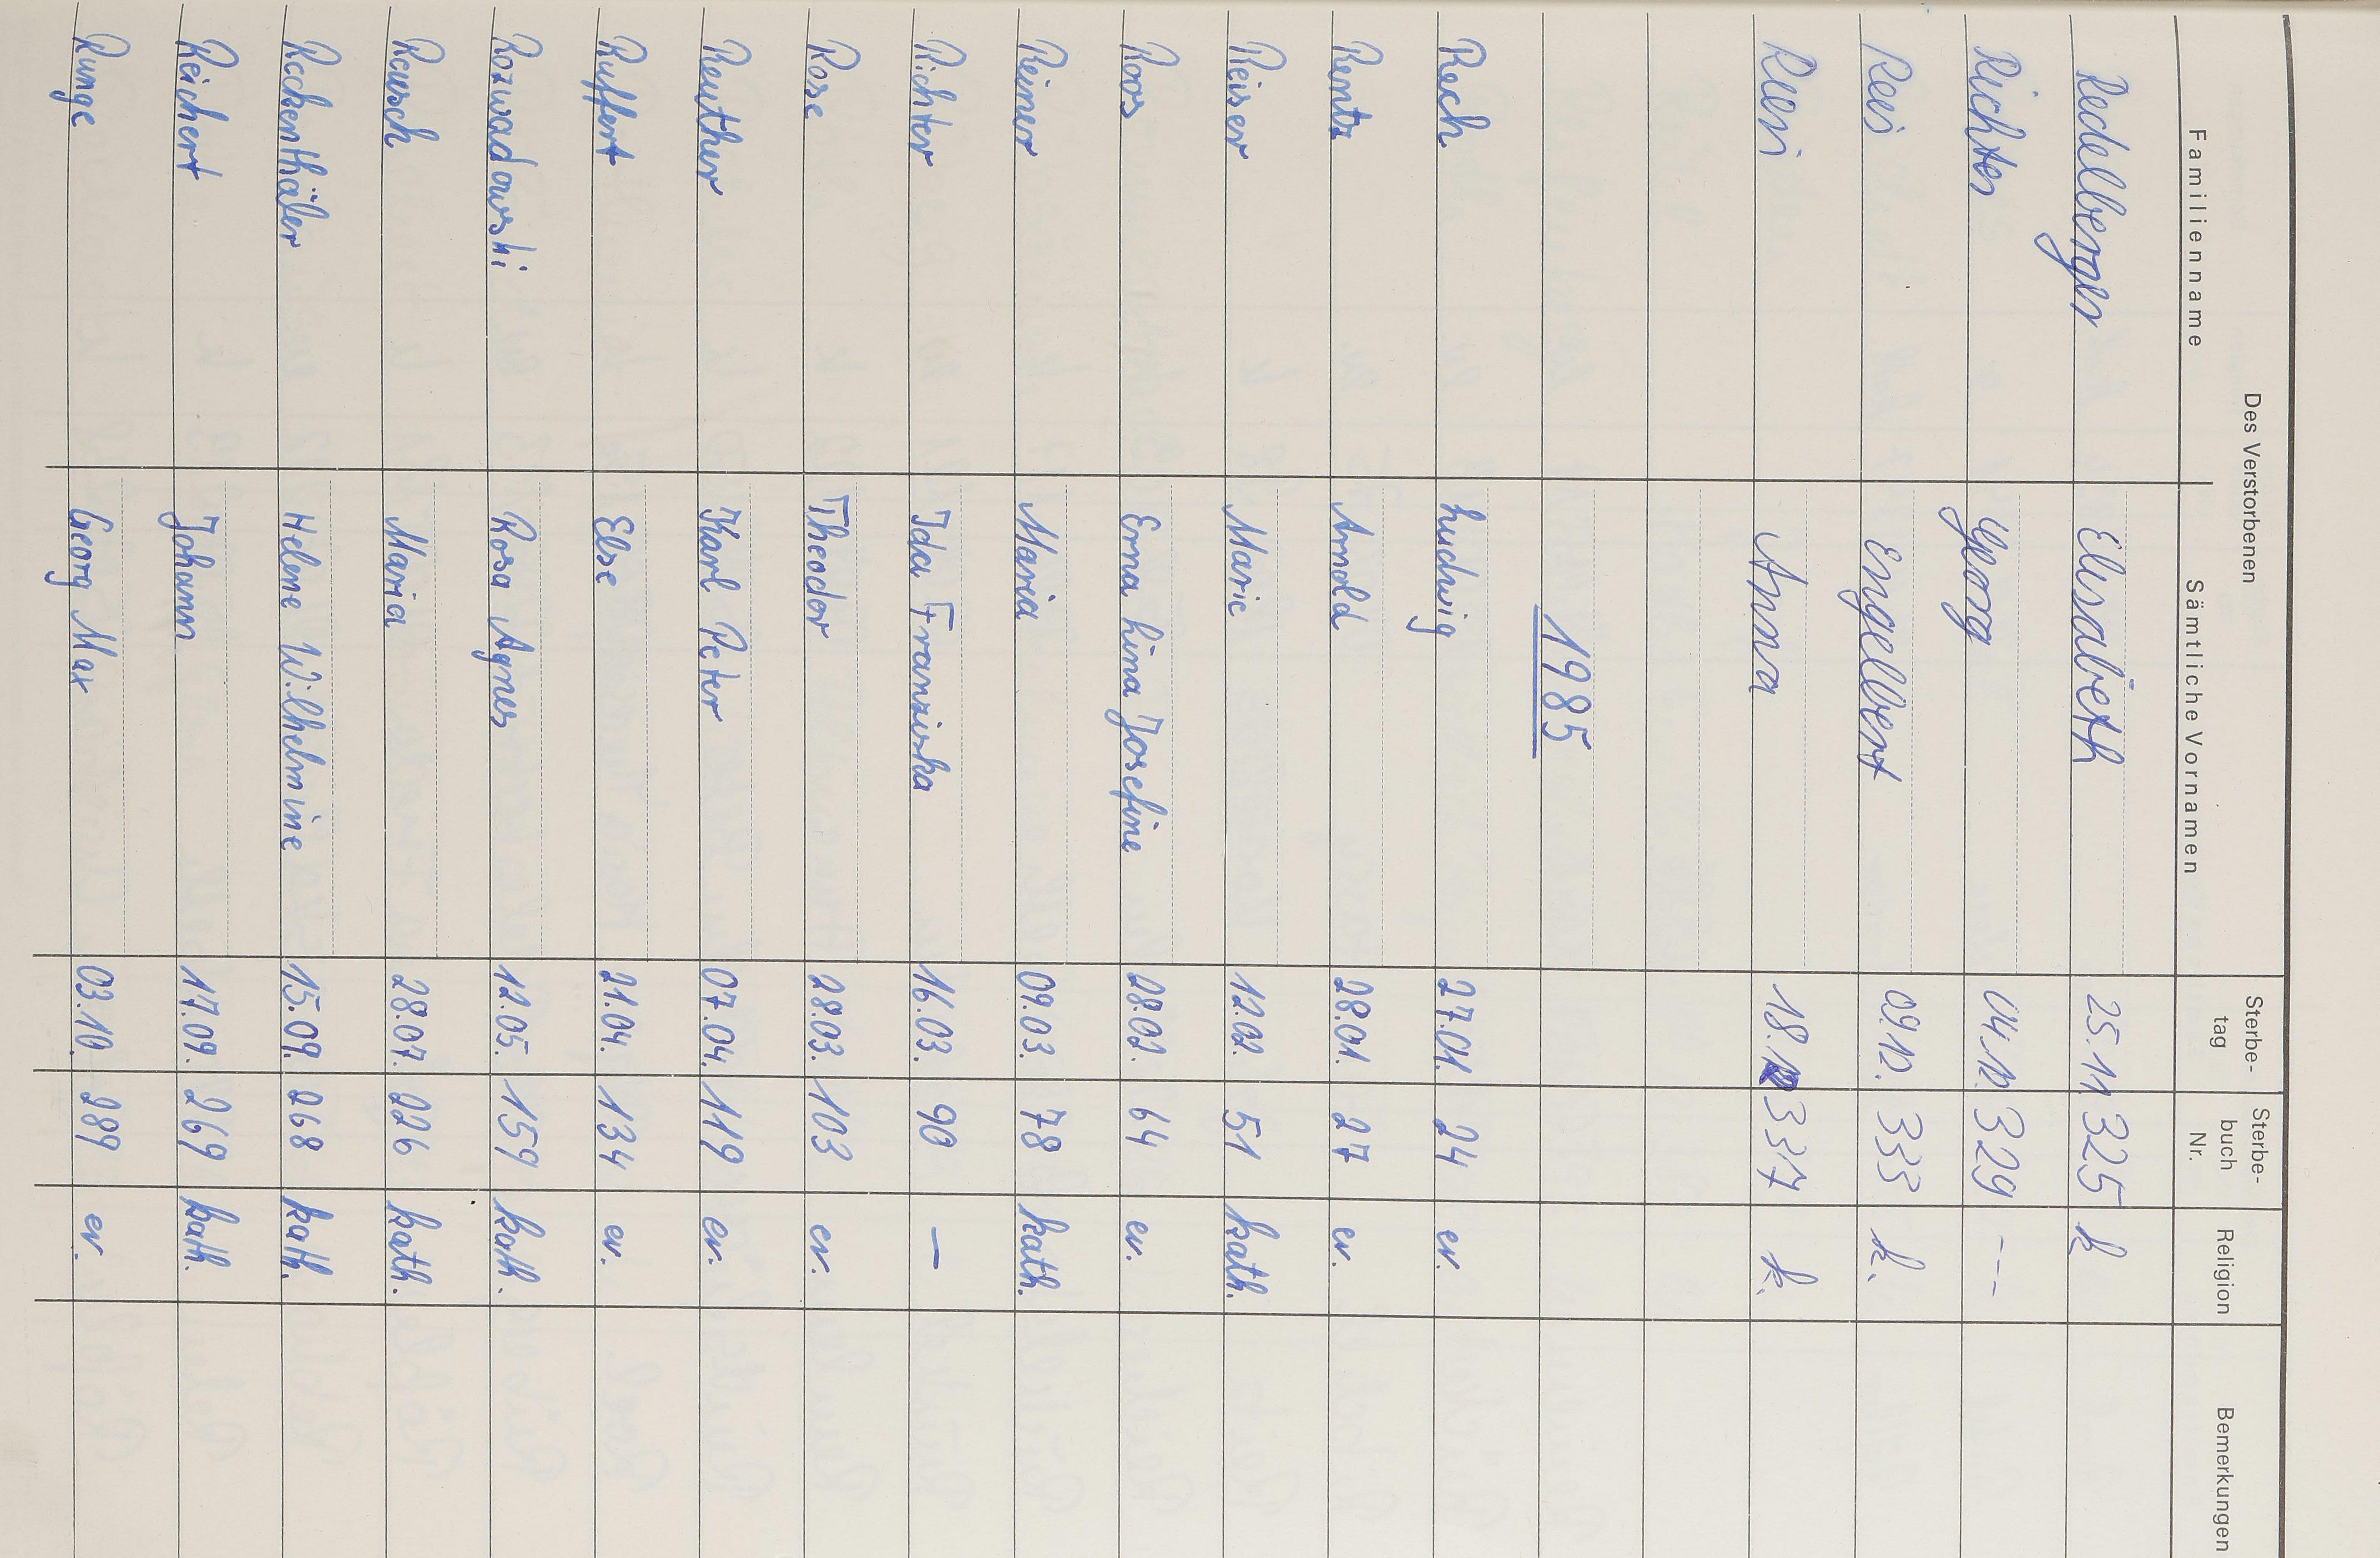 Des Verstorbenen
Familienname Sämtliche Vornamen Sterbe-tag Sterbe-buch Nr. Religion Bemerkungen
Redelberger Elisabeth 25.11. 325 k
Richter Georg 04.12. 329 ---
Reis Engelbert 09.12. 333 k.
Anna 18.12 337 k.
1985
Rech Ludwig 27.01. 24 ev.
Rentz Arnold 28.01. 27 ev.
Reiser Marie 12.02. 51 kath.
Roos Erna Lina Josefine 28.02. 64 ev.
Reiner Maria 09.03. 78 kath.
Richter Ida Franziska 16.03. 90 —
Rose Theodor 28.03. 103 ev.
Reuther Karl Peter 07.04. 119 ev.
Ruffert Else 21.04. 134 ev.
Rozwadowski Rosa Agnes 12.05. 159 kath.
Rausch Maria 28.07. 226 kath.
Rackenthäler Helene Wilhelmine 15.09. 268 kath.
Reichert Johann 17.09. 269 kath.
Runge Georg Max 03.10. 289 ev.